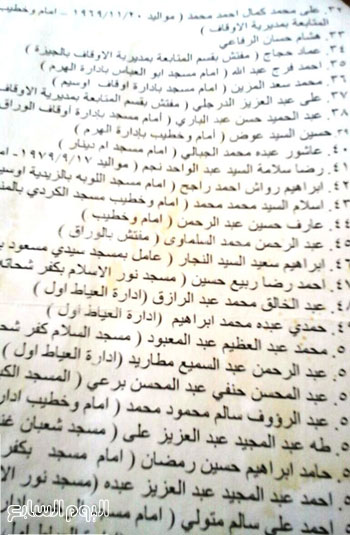 ٣٢. على محمد كمال احمد محمد ( مواليد ١٩٦٩/١١/٢٠ - امام وخطيب
المتابعة بمديرية الاوقاف )
٣٣. هشام حسان الرفاعي
٣٤. عماد حجاج ( مفتش بقسم المتابعة بمديرية الاوقاف بالجيزة )
٣٥. احمد فرج عبد الله ( امام مسجد ابو العباس بادارة الهرم )
٣٦. محمد سعد المزين ( امام مسجد بادارة اوقاف اوسيم )
٣٧. على عبد العزيز الدرجلي ( مفتش بقسم المتابعة بمديرية الاوقاف
٣٨. عبد الحميد حسن عبد الباري ( امام مسجد بادارة أوقاف الوراق
حسين السيد عوض ( امام وخطيب بإدارة الهرم )
٤٠. عاشور عبده محمد الجبالي ( امام مسجد ام دينار )
٤١. رضا سلامة السيد عبد الواحد نجم ( مواليد ١٩٧٩/٩/١٧- اما
٤٢. ابراهيم رواش احمد راجح ( امام مسجد اللوبه بالزيدية اوسيم
٤٣. اسلام السيد محمد محمد ( امام وخطيب مسجد الكردي بالمنـ
٤٤. عارف حسين عبد الرحمن ( امام وخطيب )
٤٥. عبد الرحمن محمد السلماوى ( مفتش بالوراق )
٤٦. ابراهيم سعيد السيد النجار ( عامل بمسجد سيدي مسعود بـ
٤٧. احمد رضا ربيع حسين ( مسجد نور الاسلام بكفر شحاته
٤٨. عبد الخالق محمد عبد الرازق (ادارة العياط اول )
٤٩. حمدي عبده محمد ابراهيم (ادارة العياط اول )
٥. محمد عبد العظيم عبد المعبود ( مسجد السلام كفر شحا
٥. عبد الرحمن عبد السميع مطاريد (ادارة العياط اول )
٥. عبد المحسن حنفي عبد المحسن برعي ( المسجد الكبـ
٥. عبد الرؤوف سالم محمود محمد ( امام وخطيب ادار
٥. طه عبد المجيد عبد العزيز على ( مسجد شعبان غنـ
٥. حامد ابراهيم حسين رمضان ( امام مسجد بكفر
احمد عبد المجيد عبد العزيز عبده (مسجد نور الا
احمد على سالم متولي ( امام مسجد
اليوم السابع